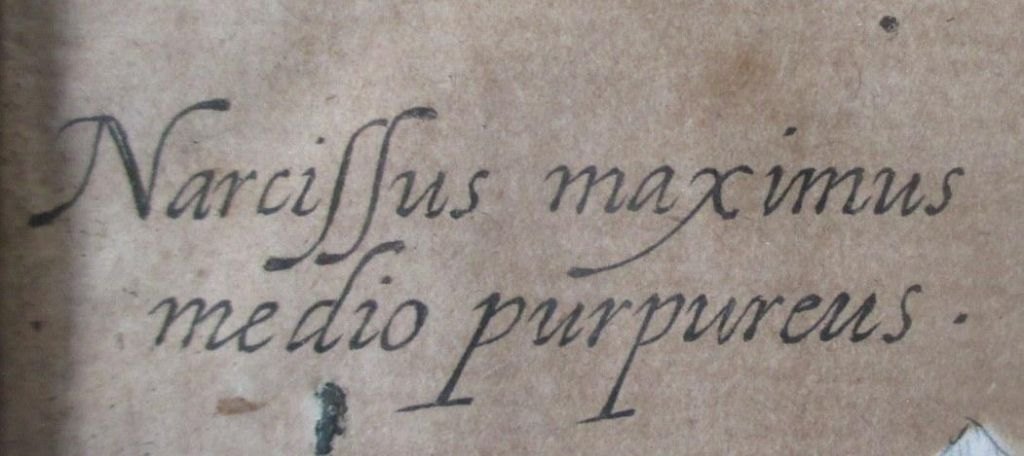 Narciſſus maximus
medio purpureus.